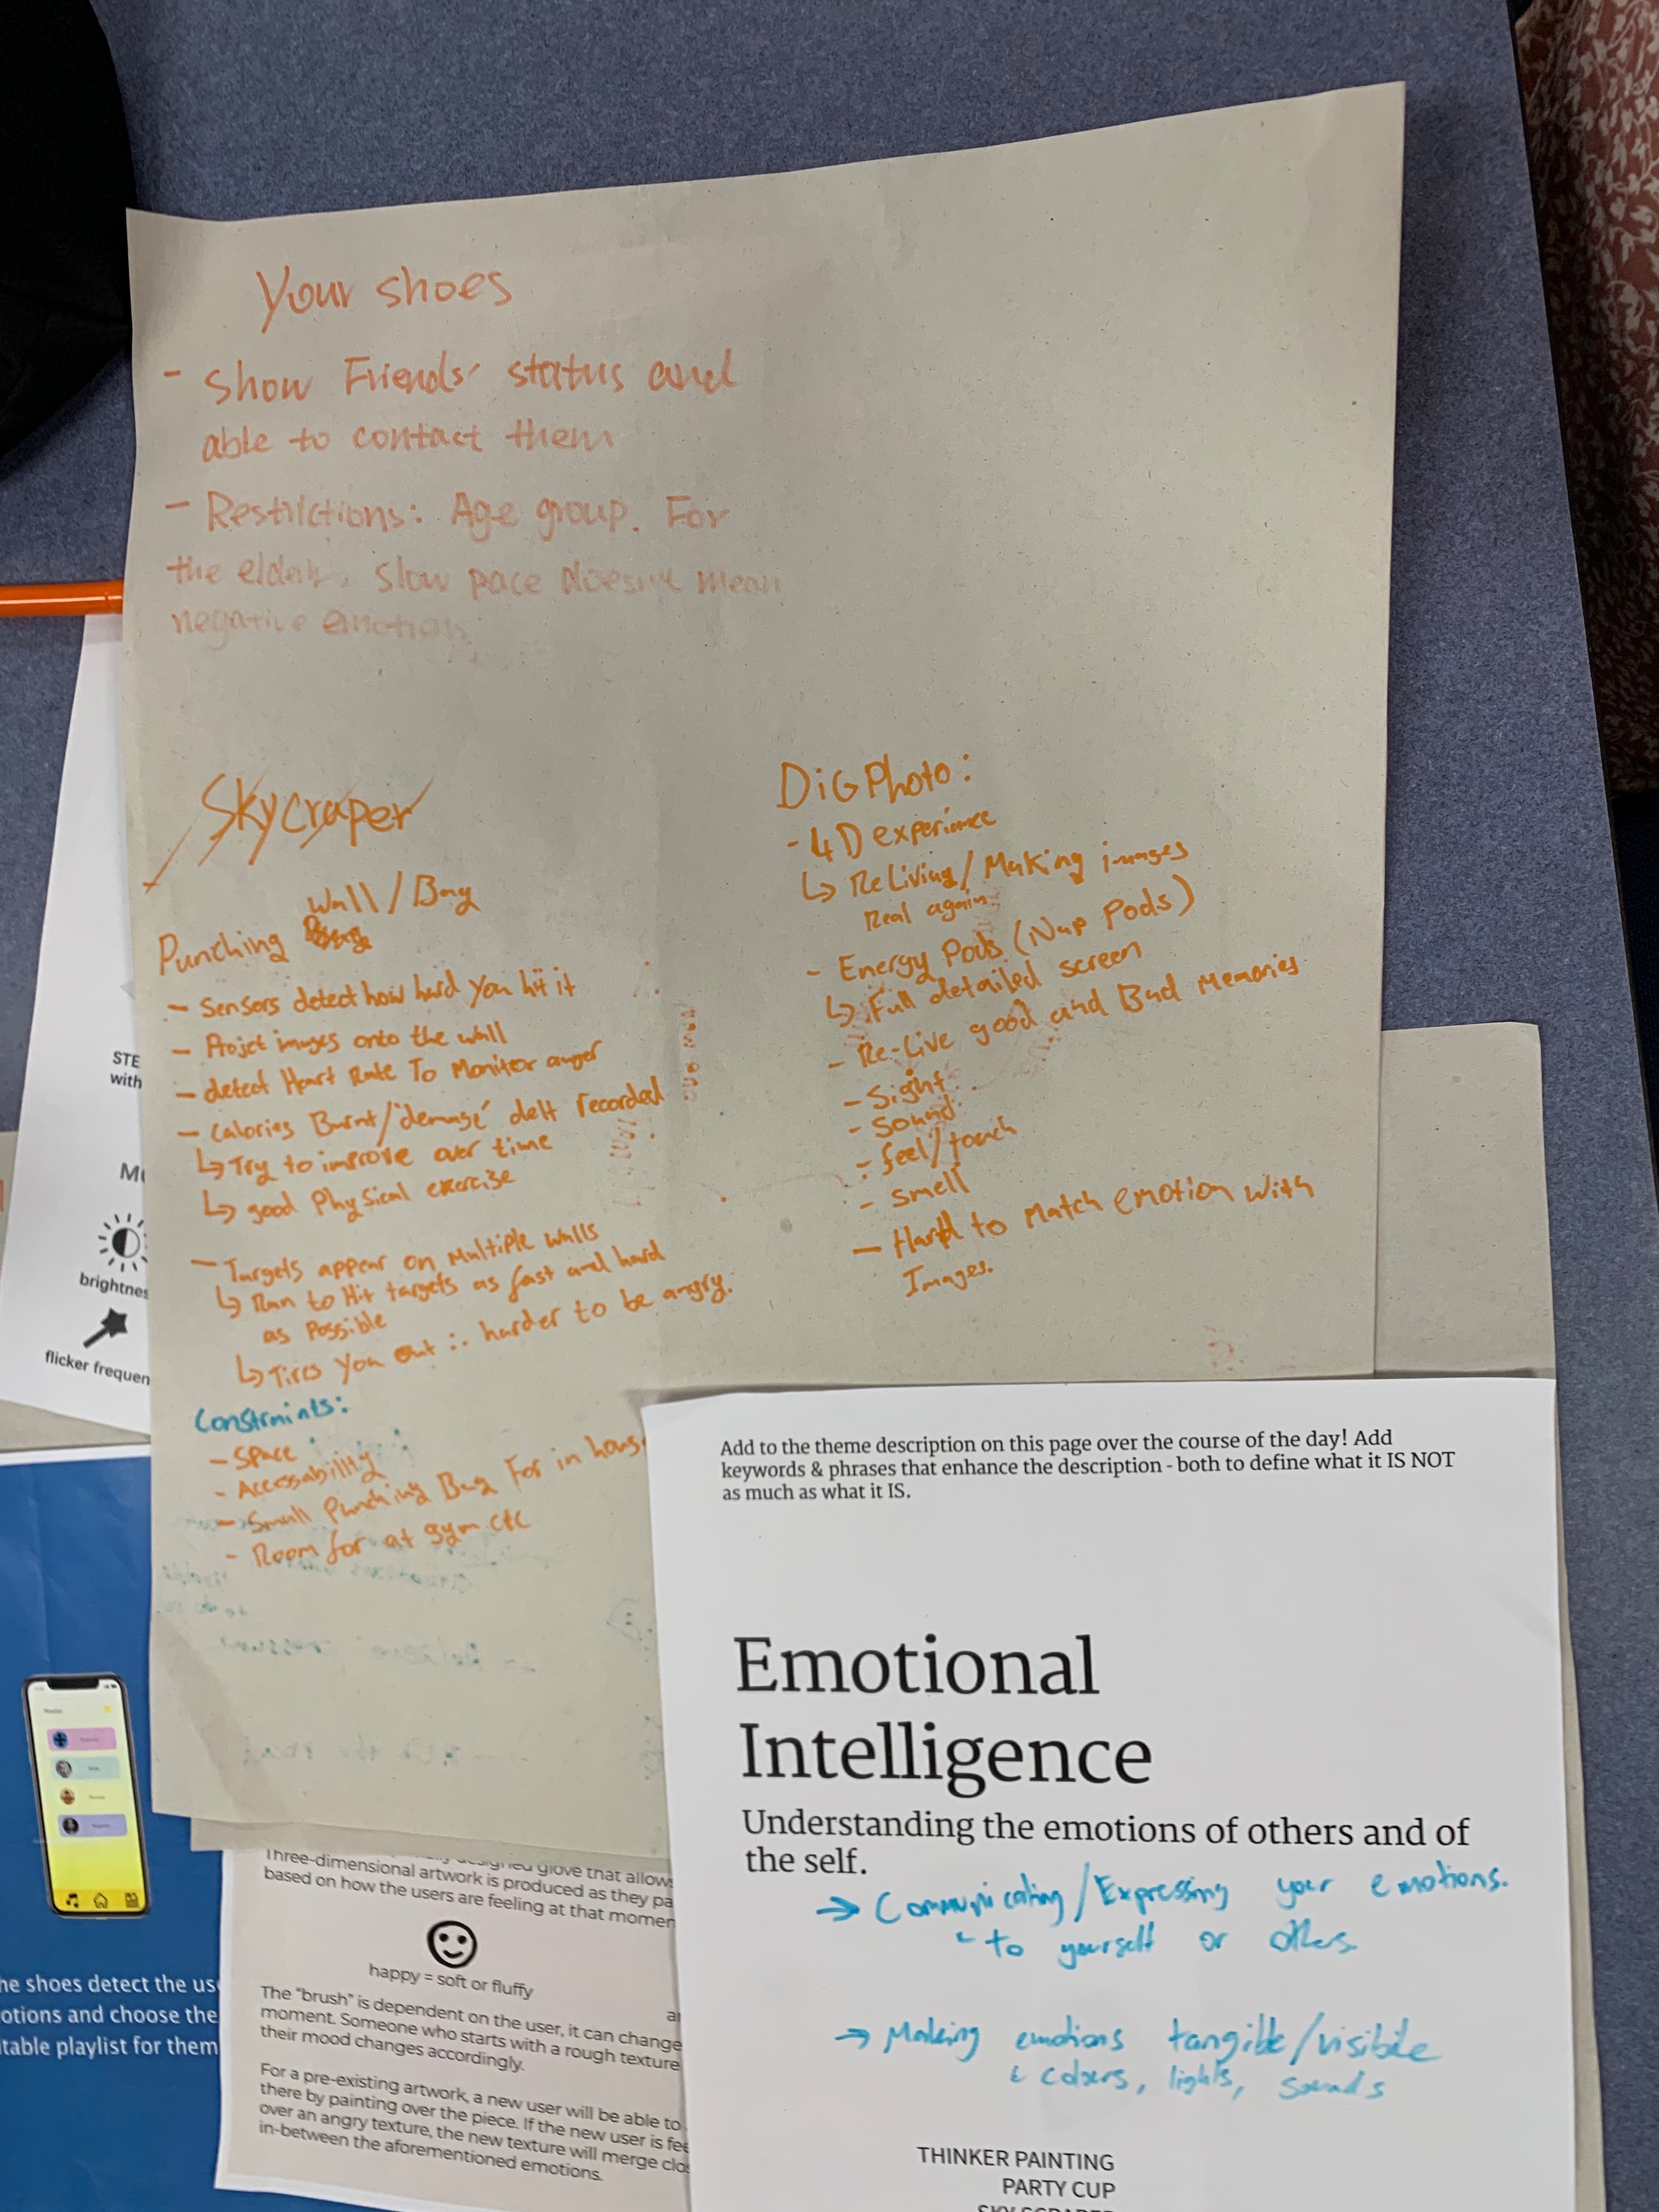 Your shoes
- Show Friends' status and
able to contact them
- Restrictions: Age group. For
the elderly, slow pace doesn't mean
negative emotion
Skycraper
Wall/Bag
Punching
- Sensors detect how hard you hit it
- Projct images onto the wall
- detect Heart Rate To Monitor anger
- Calories Burnt/'demage' delt recorded
↳ Try to improve over time
↳ good Physical exercise
- Targets appear on Multiple walls
↳ Run to Hit targets as fast and hard
as Possible
↳ Tires you out ∴ harder to be angry.
Constraints:
- Space
- Accessability
- Small Punching Bag For in hous
- Room for at gym etc
DiGPhoto:
- 4D experience
↳ ReLiving/Making images
Real again
- Energy Pods (Nap Pods)
↳ Full detailed screen
- Re-Live good and Bad Memories
- Sight
- Sound
- feel/touch
- smell
- Hard to Match emotion with
Images.
STE
with
brightnes
flicker frequen
Add to the theme description on this page over the course of the day! Add
keywords & phrases that enhance the description - both to define what it IS NOT
as much as what it IS.
Emotional
Intelligence
Understanding the emotions of others and of
the self.
→ Communicating/Expressing your emotions.
to yourself or others
→ Making emotions tangible/visible
colours, lights, sounds
THINKER PAINTING
PARTY CUP
glove that allow
Three-dimensional artwork is produced as they pa
based on how the users are feeling at that momen
happy = soft or fluffy
The "brush" is dependent on the user, it can change
moment. Someone who starts with a rough texture
their mood changes accordingly.
For a pre-existing artwork, a new user will be able to
there by painting over the piece. If the new user is fee
over an angry texture, the new texture will merge clo
in-between the aforementioned emotions.
he shoes detect the us
otions and choose the
table playlist for them